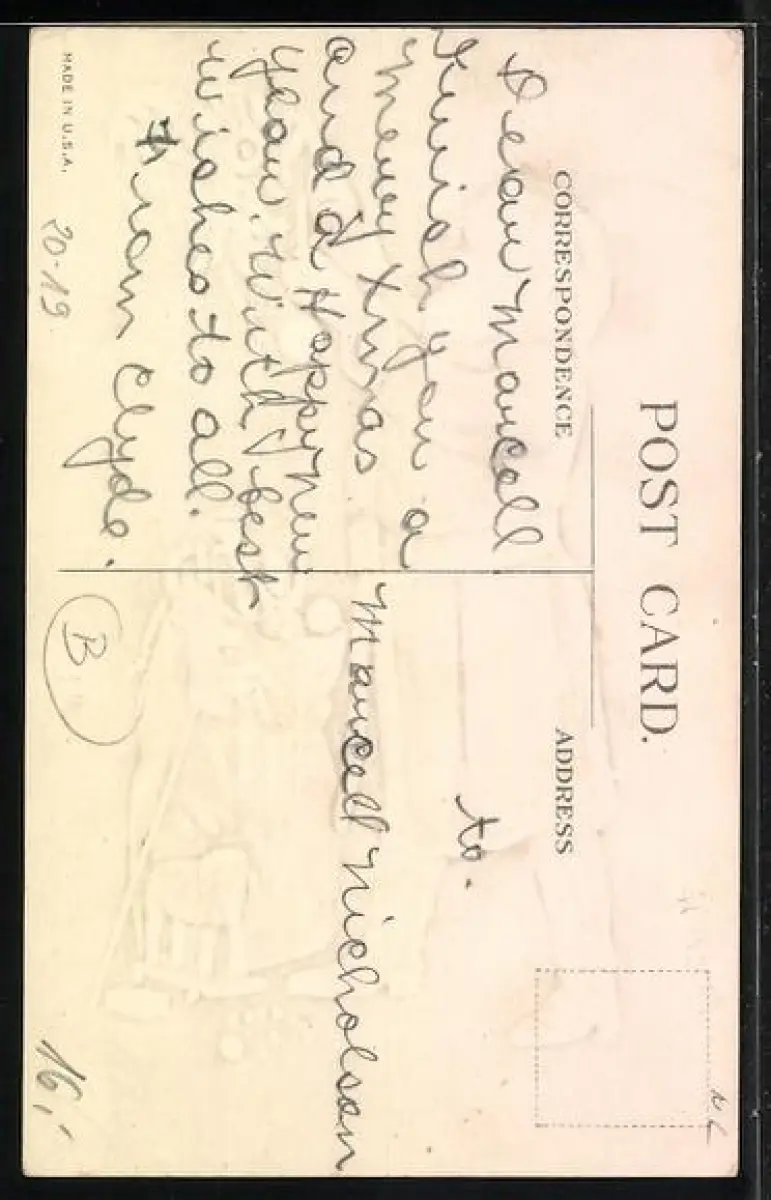 POST CARD.
CORRESPONDENCE
ADDRESS
Dear Marcell
I wish you a
merry Xmas
and a Happy New
year. With best
wishes to all.
From Clyde.
to.
Marcell Nicholson
MADE IN U.S.A.
20-19
B
16,-